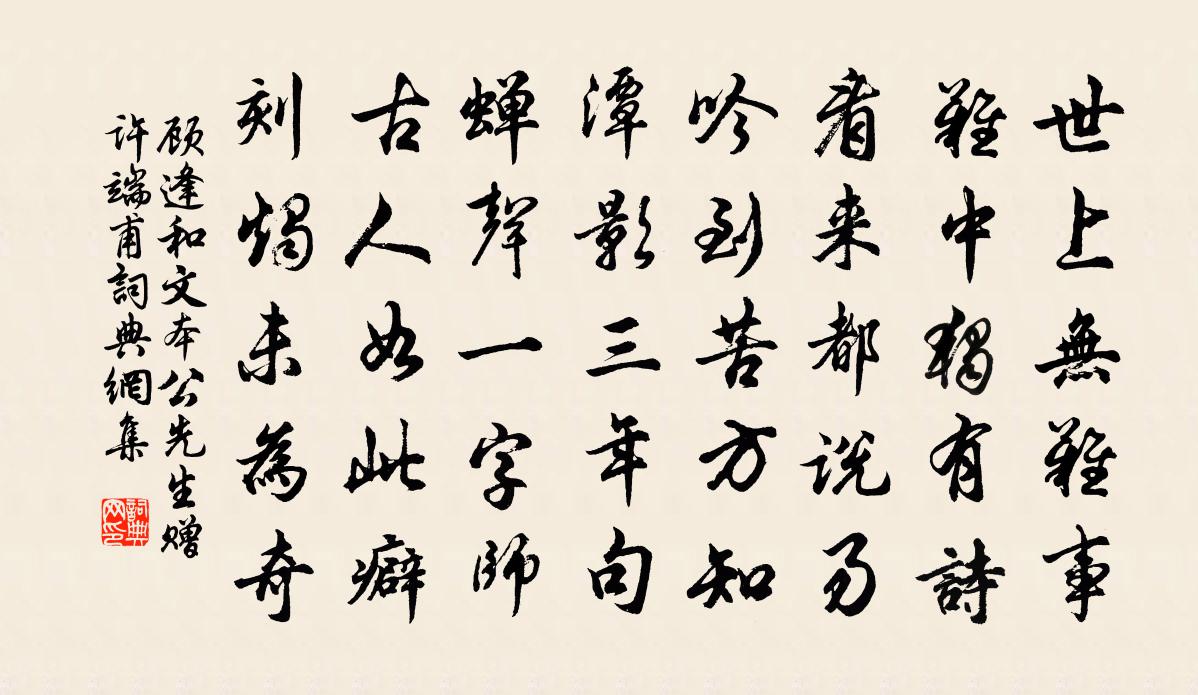 世上無難事
難中獨有詩
看来都說易
吟到苦方知
潭影三年句
蟬聲一字師
古人如此癖
刻燭未為奇
顾逢和文本公先生赠
许端甫詞典網集
詞典网印